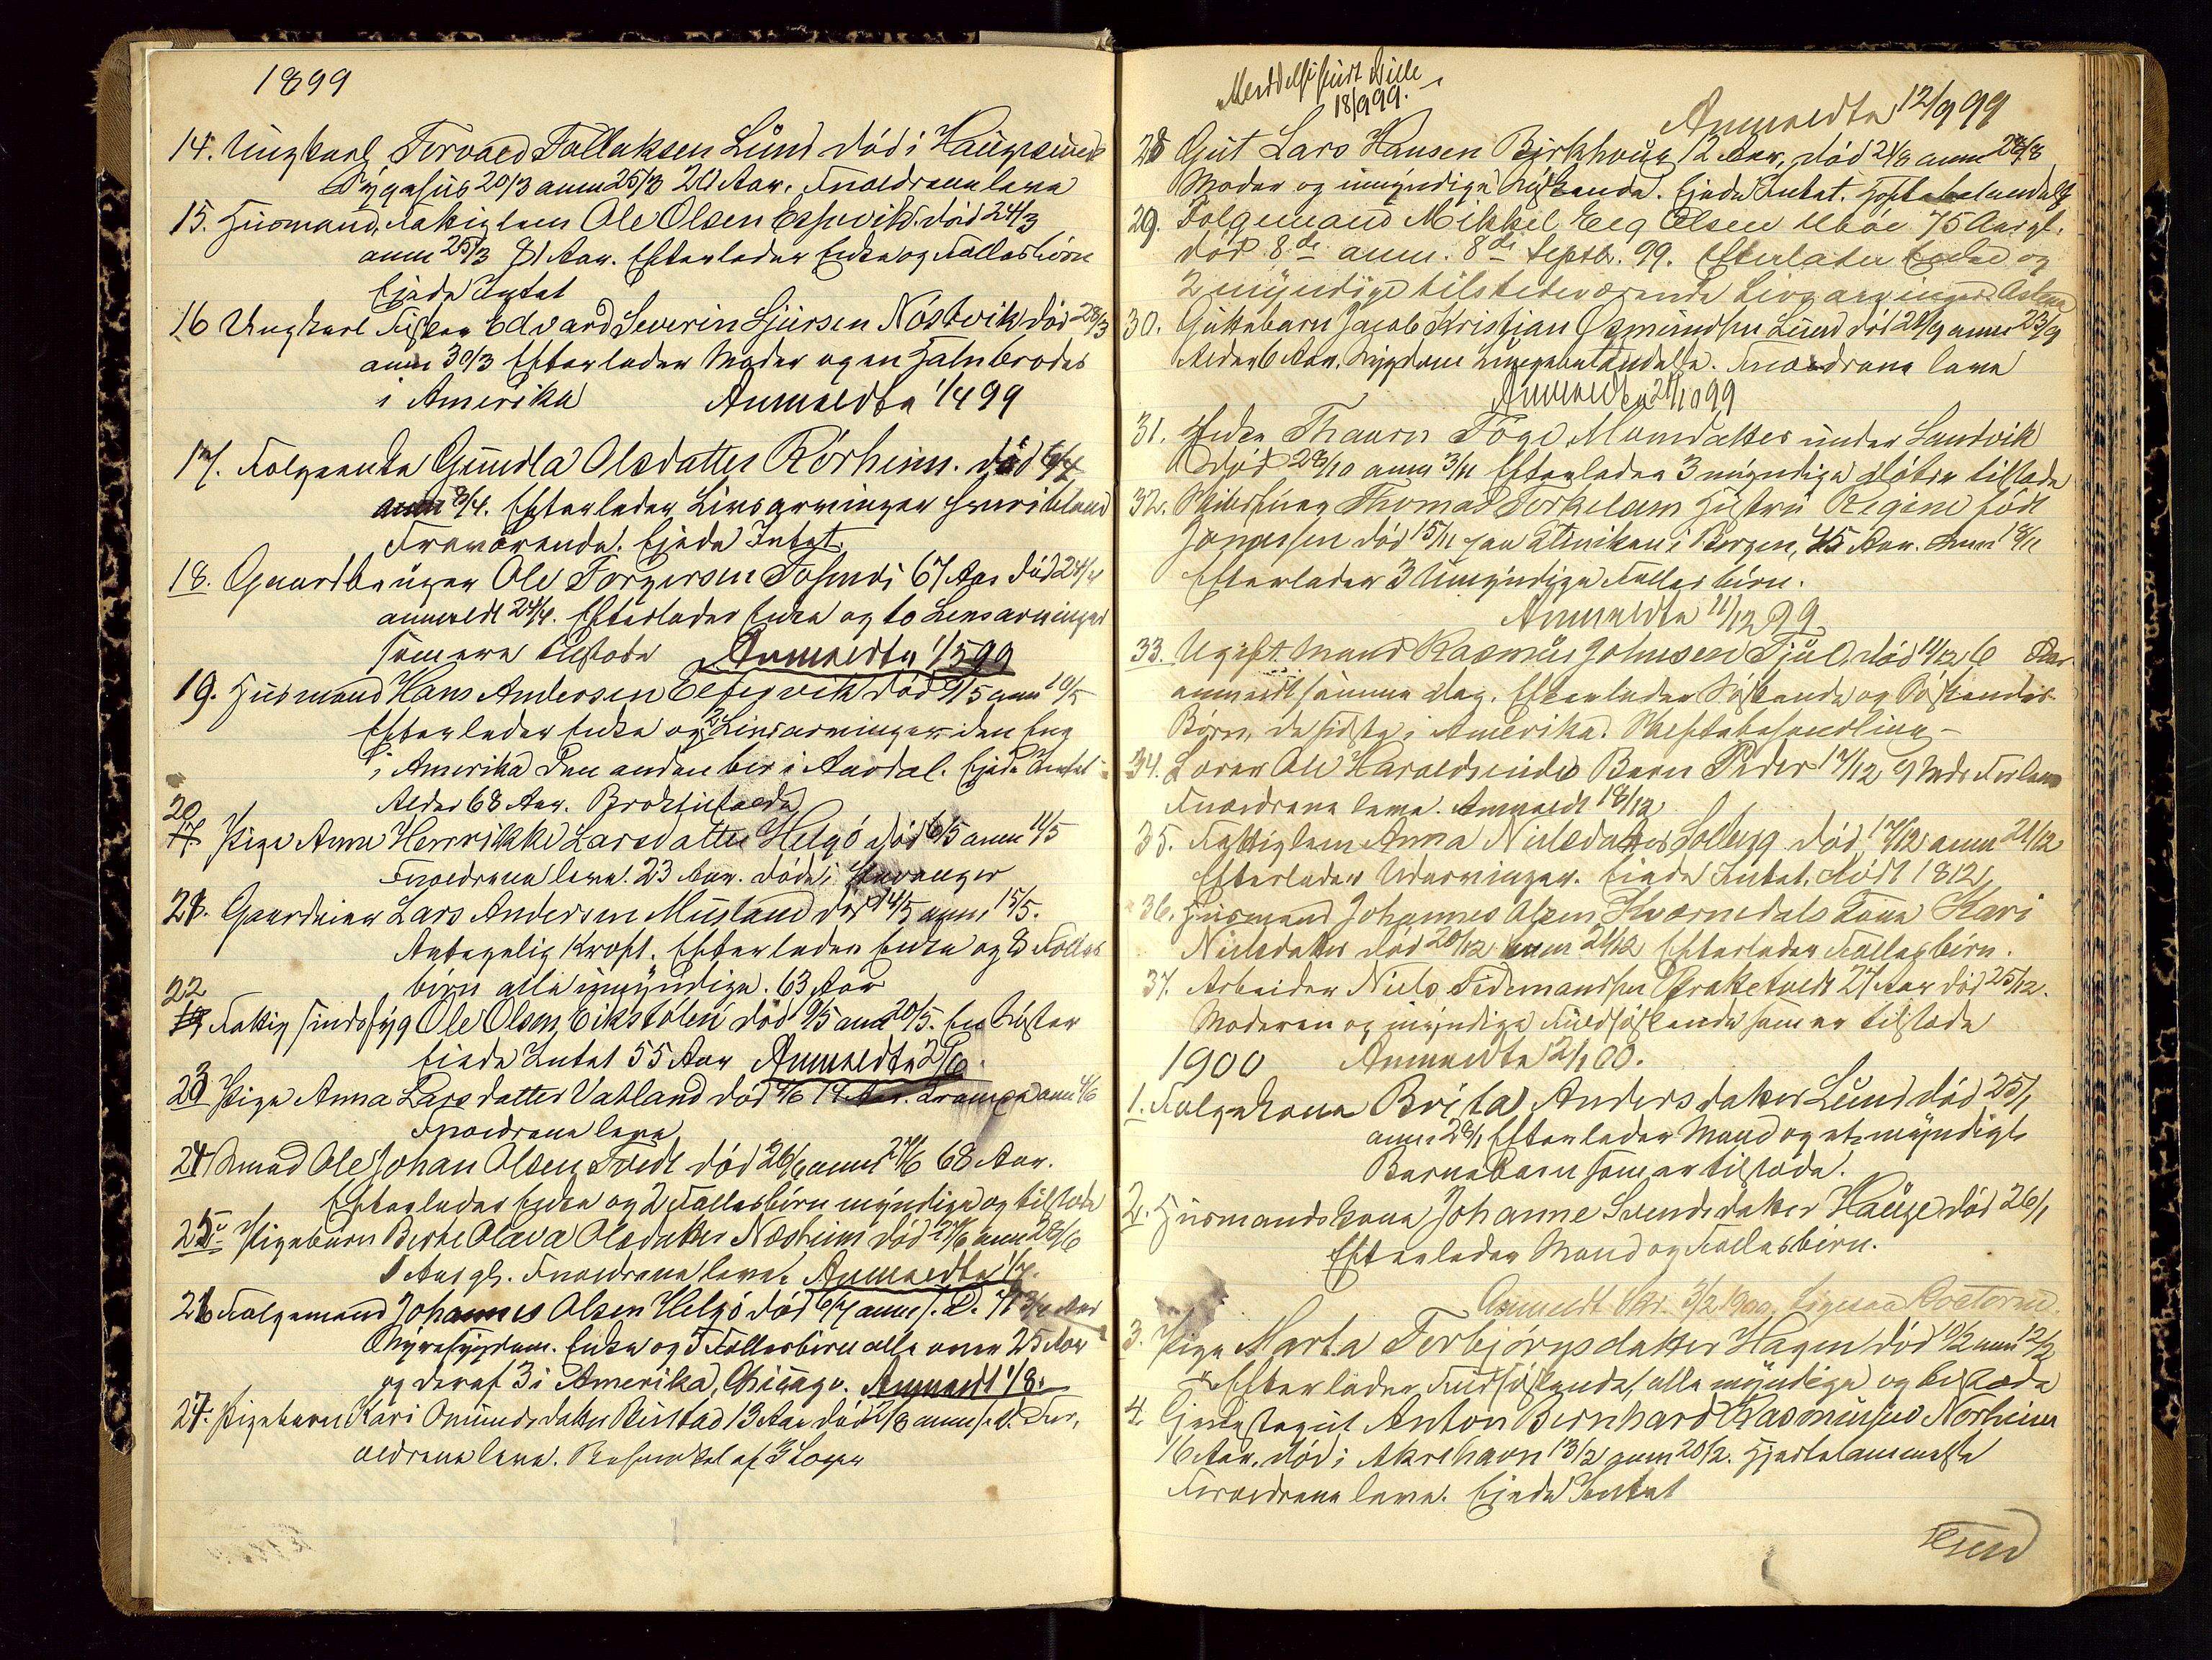 1899
14. Ungkarl Torvald Tollaksen Lund död i Haugesund
Sygehus 20/3 anm 25/3 20 Aar. Foreldrene leve
15. Husmand, Fattiglem Ole Olsen död 24/3
anm 25/3 81 Aar. Efterlader Enke og Fellesbörn
Eiede Intet
16 Ungkarl Fisker Edvard Severin Sjursen Nöstvik död 28/3
anm 30/3 Efterlader Moder og en Halvbroder
i Amerika Anmeldte 1/4 99
17. Folgeenke Gundla Olsdatter Rörheim. död 6/4
anm 8/4. Efterlader Livsarvinger
Fraværende. Eiede Intet.
18. Gaardbruger Ole Torgersen 67 Aar död 24/4
anmeldt 24/4. Efterlader Enke og to Livsarvinger
som ere tilstede Anmeldte 1/5 99
19. Husmand Hans Andersen död 9/5 anm 10/5
Efterlader Enke og 2 Livsarvinger den Ene
i Amerika den anden bor i Aardal. Eiede Intet
Alder 68 Aar.
20
Pige Anne Henrikke Larsdatter Helgö död 6/5 anm 11/5
Foreldrene leve. 23 Aar. döde i Stavanger
21. Gaardeier Lars Andersen Musland död 14/5 anm. 15/5.
Antagelig Kreft. Efterlader Enke og 8 Felles
börn alle umyndige. 63 Aar
22
Fattig sindssyg Ole Olsen Eikstölen död 9/5 anm 20/5. En Söster
Eiede Intet 55 Aar Anmeldte 2/6.
23 Pige Anna Larsdatter Vatland död 4/6 Krampe anm 4/6
Foreldrene leve
24 Mand Ole Johan Olsen Tvedt död 26/6 anm 27/6 68 Aar.
Efterlader Enke og 2 Fellesbörn myndige og tilstede
25. Pigebarn Berte Olava Olsdatter Nordheim död 27/6 anm 28/6
1 Aar gl. Foreldrene leve. Anmeldte 1/7.
26 Folgemand Johannes Olsen Helgö död 6/7 anm s. D.
Nyresygdom. Enke og 5 Fellesbörn alle over 25 Aar
og deraf 3 i Amerika, Chicago. Anmeldt 1/8.
27. Pigebarn Kari Omundsdatter 13 Aar död 2/8 anm s. D. For,
eldrene leve.
18/9 99.
Anmeldte 12/9 99
28 Gut Lars Hansen Bjrkhoug 12 Aar, död 21/8 anm 28/8
Moder og umyndige Söskende. Eiede Intet.
29. Folgemand Mikkel Eeg Olsen Ubøe 75 Aar gl.
död 8de anm. 8de Septbr. 99. Efterlader Enke og
2 myndige tilstedeværende Livsarvinger
30. Guttebarn Jacob Kristian Osmundsen Lund död 21/9 anm 23/9
Alder 6 Aar. Foreldrene leve
Anmeldte 21/10 99
31. Enke Thauru Tögr. Monsdatter under Sandvik
död 28/10 anm 3/11 Efterlader 3 myndige Dötre tilstede
32. Thomas Torkelsens Hustru Regine född
Jonassen död 15/11 paa Kliniken i Bergen, 45 Aar. anm 18/11
Efterlader 3 Umyndige Felles börn.
Anmeldte 11/12 99
33. Ugift Mand Rasmus Johnsen död 11/12 Aar
anmeldt samme Dag. Efterlader Söskende og Söskendes
Börn, de sidste i Amerika. Skiftebehandling -
34. Lærer Ole Haraldseids Barn Peder 17/12 9 Mdr
Foreldrene leve. Anmeldt 18/12
35. Fattiglem Anna Nielsdatter Solberg död 17/12 anm 21/12
Efterlader Udarvinger. Eiede Intet. född 1812
36. Husmand Johannes Olsen Kværnedals Kone Kari
Nielsdatter död 20/12 anm 21/12 Efterlader Fellesbörn.
37. Arbeider Niels Tidemandsen Braketvedt 27 Aar död 25/12.
Moderen og myndige Fuldsöskende som er tilstede
1900 Anmeldte 2/1 00.
1. Folgekone Brita Andersdatter Lund död 25/1
anm 28/1 Efterlader Mand og et myndigt
Barnebarn som er tilstede.
2. Husmandskone Johanne Svendsdatter Hauge död 26/1
Efterlader Mand og Fellesbörn.
Anmeldt Skr. 3/2 1900, ligesaa
3. Pige Marta Torbjörnsdatter Hagen död 10/2 anm 12/2
Efterlader Fuldsöskende, alle myndige og tilstede
4. Tjenestegut Anton Bernhard Rasmussen Norheim
16 Aar. död i Akrehavn 13/2 anm 20/2. Hjertelammelse
Foreldrene leve. Eiede Intet